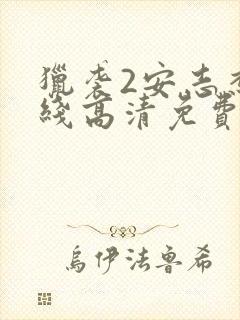 獵袭2安志杰
綫高清免費
烏伊法魯希